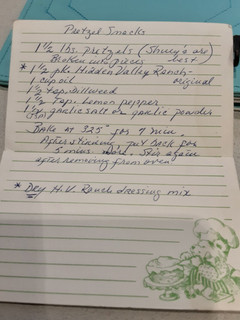 Pretzel Snacks
1 1/2 lbs. pretzels (Shuey's are
Broken into pieces best)
* 1 1/2 pk. Hidden Valley Ranch-
original
1 cup oil
1 1/2 tsp. dillweed
1 1/2 tsp. lemon pepper
1 1/2 garlic salt or garlic powder
Bake at 325 for 7 min.
After stirring, put back for
5 mins more. Stir again
after removing from oven
* Dry H.V. Ranch dressing mix